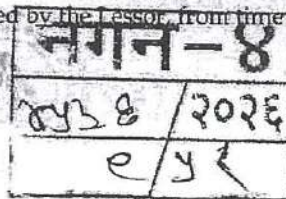 ed by the Lessor, from time
नगन-४
/२०२६
९/५१